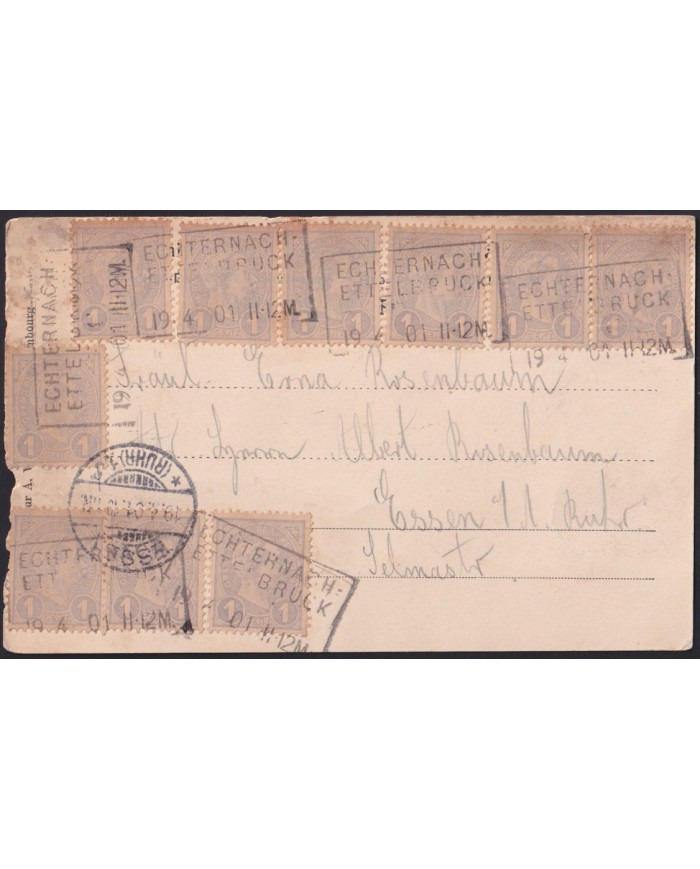 ECHTERNACH-
ETTELBRUCK
19 4 01 11-12M.
ECHTERNACH-
ETTELBRUCK
19 4 01 11-12M.
ECHTERNACH-
ETTELBRUCK
19 4 01 11-12M.
ECHTERNACH-
ETTELBRUCK
19 01 11-12M.
1 1 1 1 1 1 1 1 1 1 1
1 1
Fräul. Erna Rosenbaum
Albert Rosenbaum
Essen
Selmastr
*(RUHR)1*
ESSEN
ECHTERNACH-
ETTELBRUCK
19 4 01 11-12M.
ECHTERNACH-
ETTELBRUCK
19 4 01 11-12M.
1 1 1 1 1 1